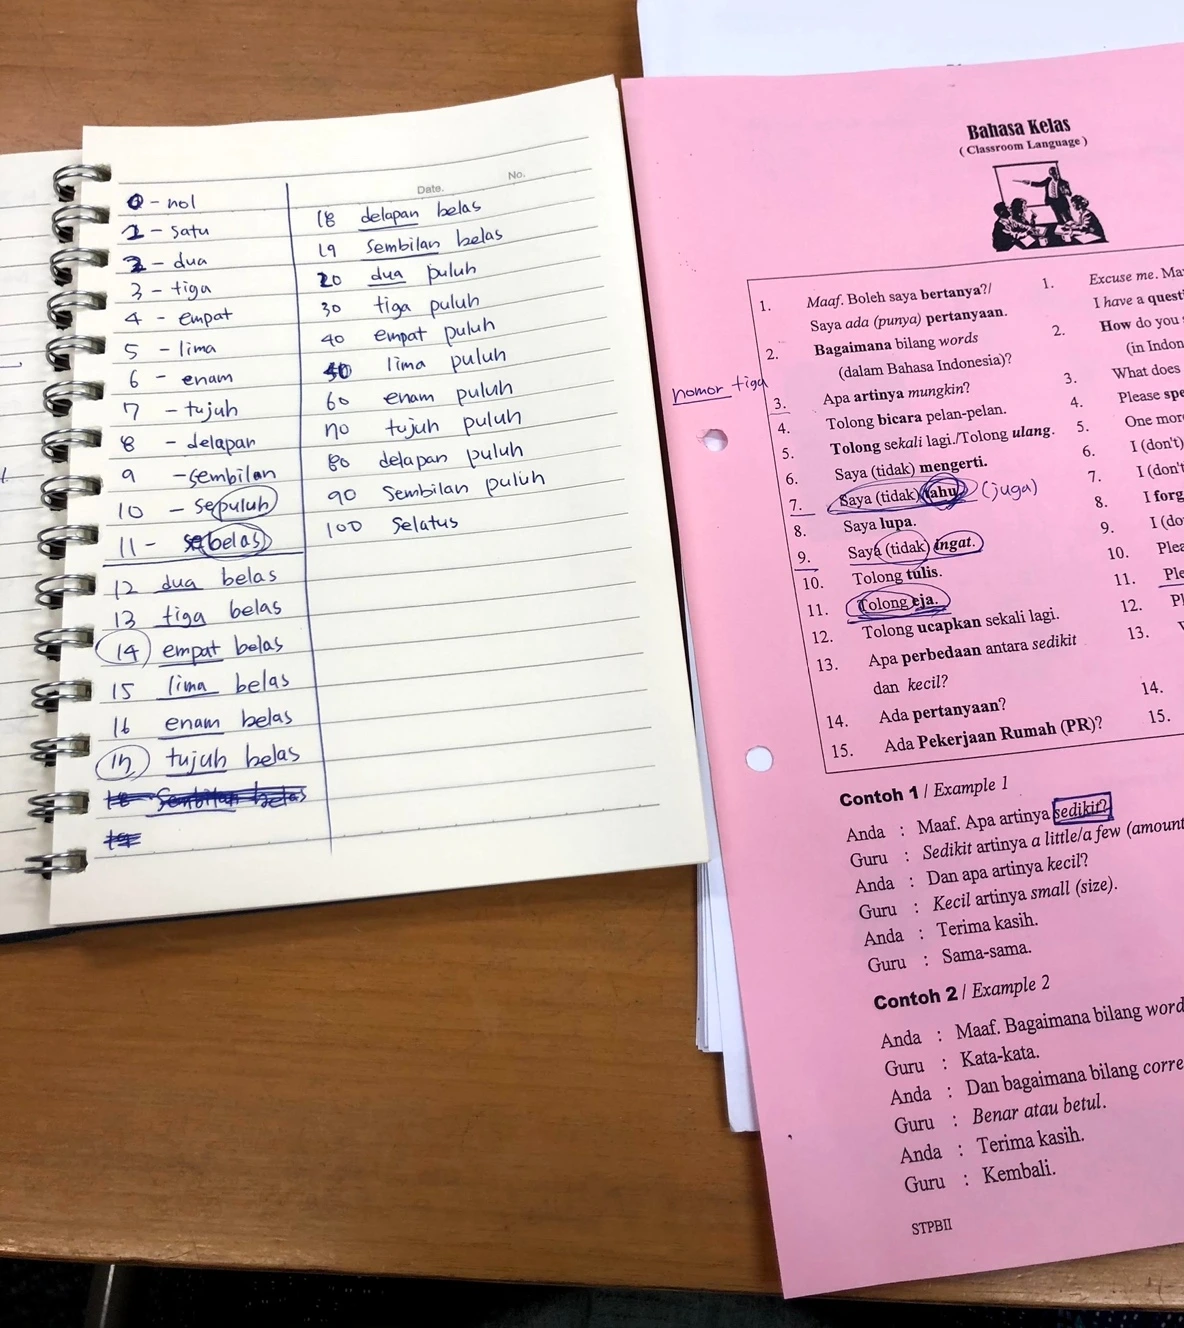 Date. No.
0 - nol
1 - satu
2 - dua
3 - tiga
4 - empat
5 - lima
6 - enam
7 - tujuh
8 - delapan
9 - sembilan
10 - sepuluh
11 - sebelas
12 dua belas
13 tiga belas
14 empat belas
15 lima belas
16 enam belas
17 tujuh belas
18 Sembilan belas
19
18 delapan belas
19 Sembilan belas
20 dua puluh
30 tiga puluh
40 empat puluh
50 lima puluh
60 enam puluh
70 tujuh puluh
80 delapan puluh
90 Sembilan puluh
100 Selatus
Bahasa Kelas
( Classroom Language )
nomor tiga
1. Maaf. Boleh saya bertanya?/
Saya ada (punya) pertanyaan.
2. Bagaimana bilang words
(dalam Bahasa Indonesia)?
3. Apa artinya mungkin?
4. Tolong bicara pelan-pelan.
5. Tolong sekali lagi./Tolong ulang.
6. Saya (tidak) mengerti.
7. Saya (tidak) tahu (juga)
8. Saya lupa.
9. Saya (tidak) ingat.
10. Tolong tulis.
11. Tolong eja.
12. Tolong ucapkan sekali lagi.
13. Apa perbedaan antara sedikit
dan kecil?
14. Ada pertanyaan?
15. Ada Pekerjaan Rumah (PR)?
1. Excuse me. Ma
I have a questi
2. How do you
(in Indon
3. What does
4. Please spe
5. One mor
6. I (don't)
7. I (don't
8. I forg
9. I (do
10. Plea
11. Ple
12. Pl
13.
14.
15.
Contoh 1 / Example 1
Anda : Maaf. Apa artinya sedikit?
Guru : Sedikit artinya a little/a few (amount
Anda : Dan apa artinya kecil?
Guru : Kecil artinya small (size).
Anda : Terima kasih.
Guru : Sama-sama.
Contoh 2 / Example 2
Anda : Maaf. Bagaimana bilang word
Guru : Kata-kata.
Anda : Dan bagaimana bilang corre
Guru : Benar atau betul.
Anda : Terima kasih.
Guru : Kembali.
STPBII